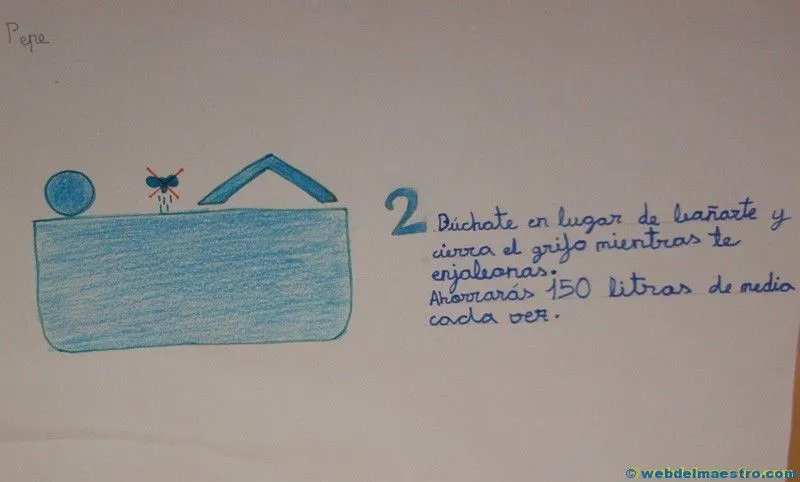 Pepe
2 Dúchate en lugar de bañarte y
cierra el grifo mientras te
enjabonas.
Ahorrarás 150 litros de media
cada vez.
© webdelmaestro.com